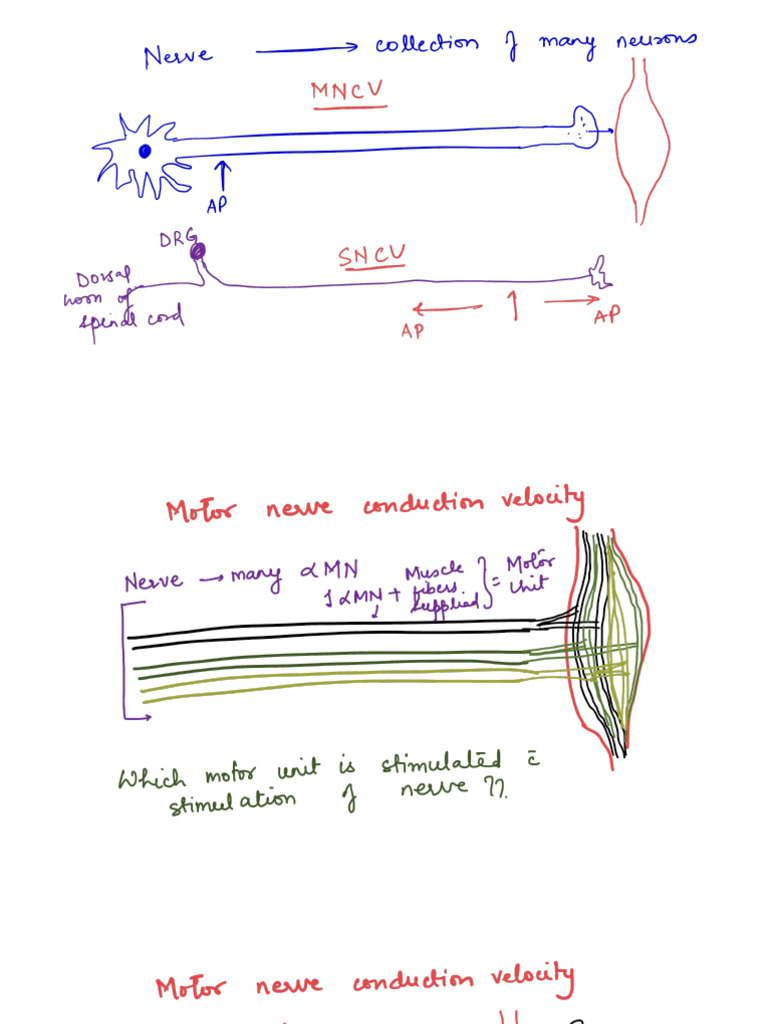 Nerve → collection of many neurons
MNCV
AP
DRG
SNCV
Dorsal
horn of
spinal cord
AP
AP
Motor nerve conduction velocity
Nerve → many αMN
1 αMN + Muscle fibers supplied } = Motor Unit
Which motor unit is stimulated c̄
stimulation of nerve ??.
Motor nerve conduction velocity